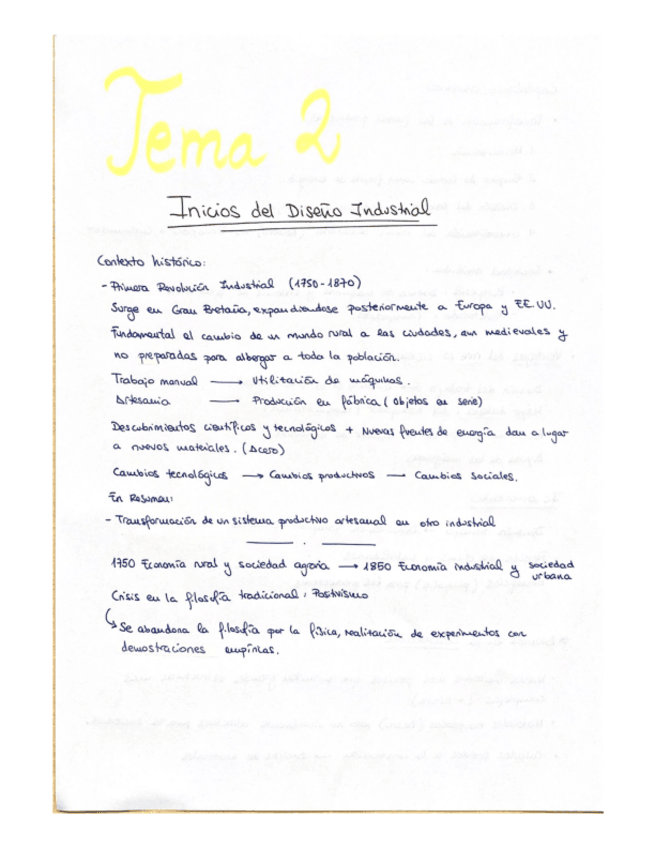 Tema 2
Inicios del Diseño Industrial
Contexto histórico:
- Primera Revolución Industrial (1750-1870)
Surge en Gran Bretaña, expandiendose posteriormente a Europa y EE.UU.
Fundamental el cambio de un mundo rural a las ciudades, aun medievales y
no preparadas para albergar a toda la población.
Trabajo manual → Utilización de máquinas.
Artesania → Producción en fábrica (objetos en serie)
Descubrimientos científicos y tecnológicos + Nuevas fuentes de energía dan a lugar
a nuevos materiales. (Acero)
Cambios tecnológicos → Cambios productivos — Cambios sociales.
En Resumen:
- Transformación de un sistema productivo artesanal en otro industrial
1750 Economía rural y sociedad agraria → 1850 Economía industrial y sociedad
urbana
Crisis en la filosofía tradicional: Positivismo
Se abandona la filosofía por la física, realización de experimentos con
demostraciones empíricas.